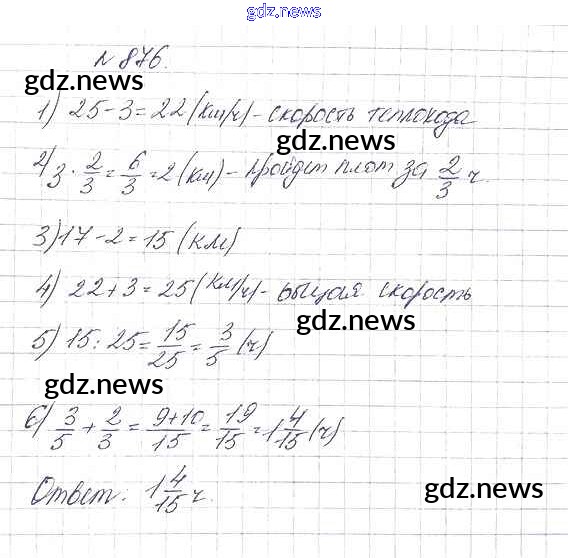 gdz.news
N 876.
gdz.news
1) 25 - 3 = 22 (км/ч) - скорость теплохода
gdz.news
2) 3 · 2/3 = 6/3 = 2 (км) - пройдет плот за 2/3 ч.
3) 17 - 2 = 15 (км)
4) 22 + 3 = 25 (км/ч) - общая скорость
gdz.news
5) 15 : 25 = 15/25 = 3/5 (ч)
gdz.news
6) 3/5 + 2/3 = 9+10/15 = 19/15 = 1 4/15 (ч)
Ответ: 1 4/15 ч.
gdz.news